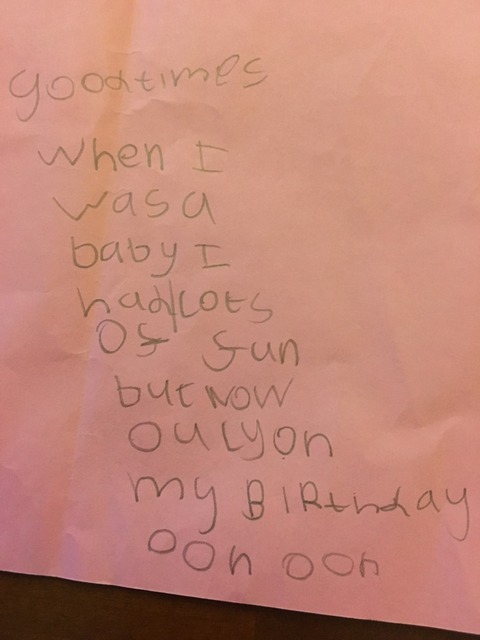 goodtimes
When I
was a
baby I
had lots
Of fun
but NOW
oulyon
my BIRthday
ooh ooh